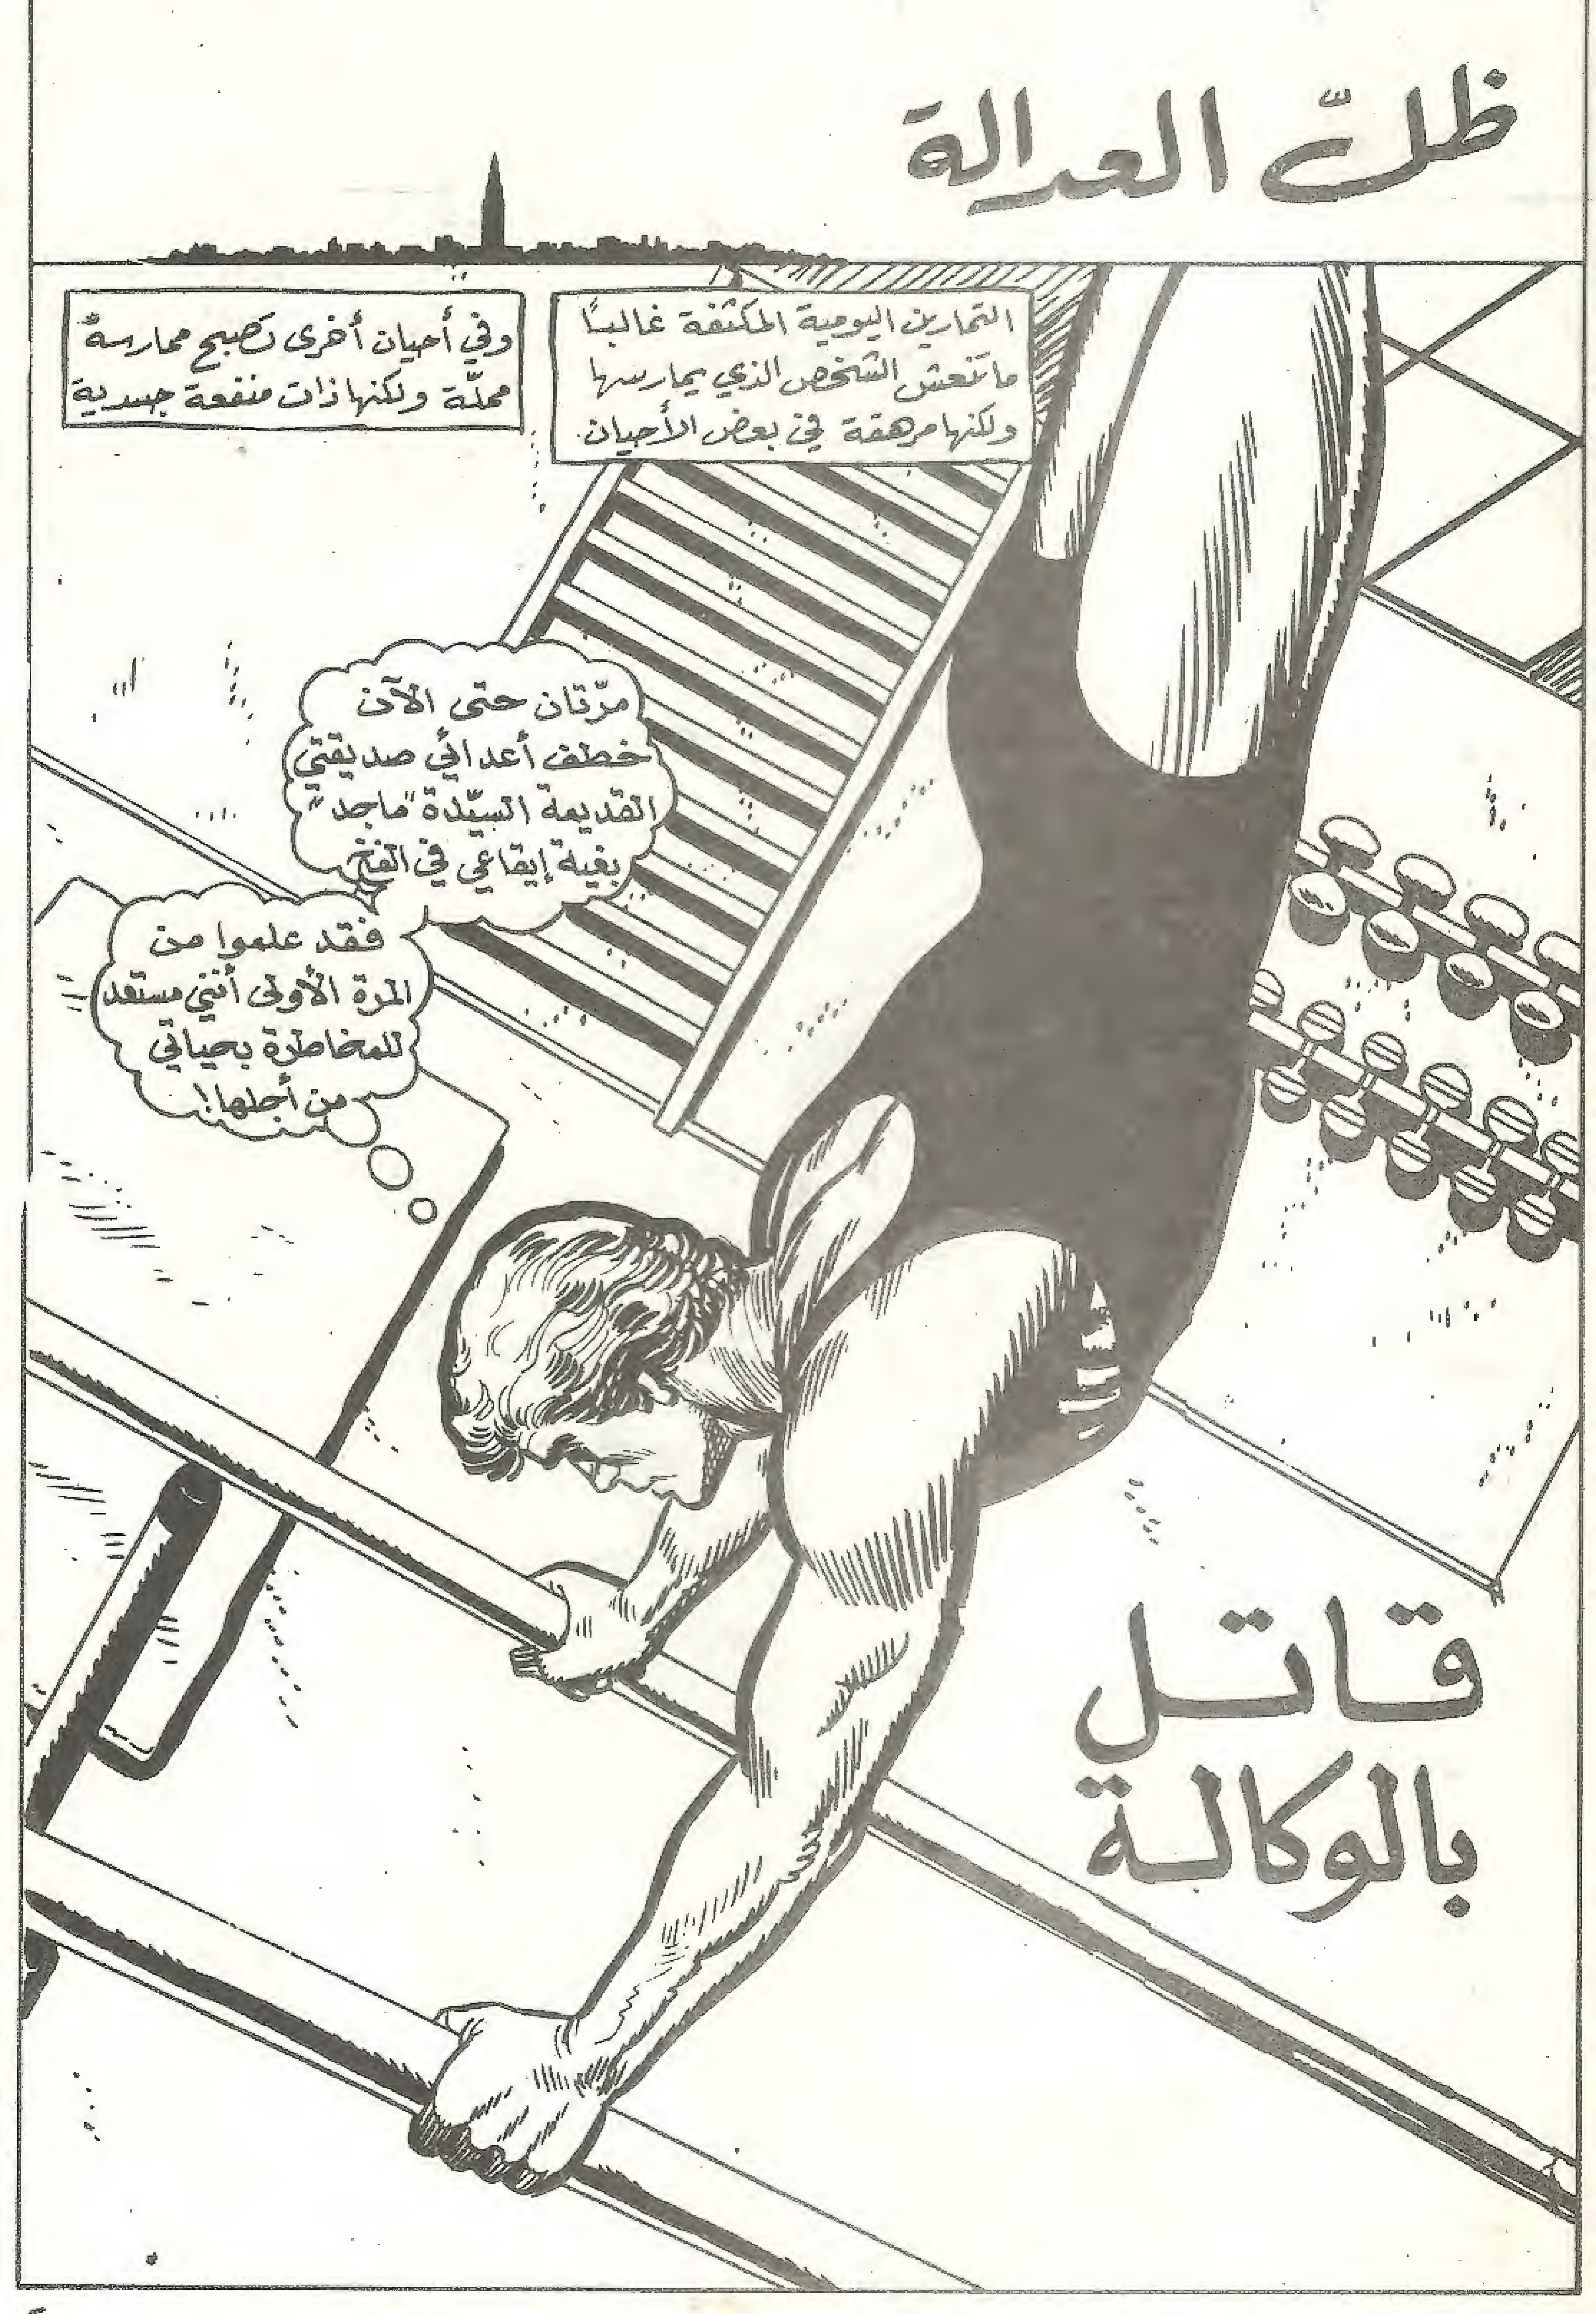 ظلّ العدالة
التمارين اليومية المكثفة غالبًا
ما تنعش الشخص الذي يمارسها
ولكنها مرهقة في بعض الأحيان.
وفي أحيان أخرى تصبح ممارسة
مملّة ولكنها ذات منفعة جسدية
مرّتان حتى الآن
خطف أعدائي صديقتي
القديمة السيّدة "ماجد"
بغية إيقاعي في الفخ
فقد علموا من
المرة الأولى أنني مستعد
للمخاطرة بحياتي
من أجلها!
قاتل
بالوكالة